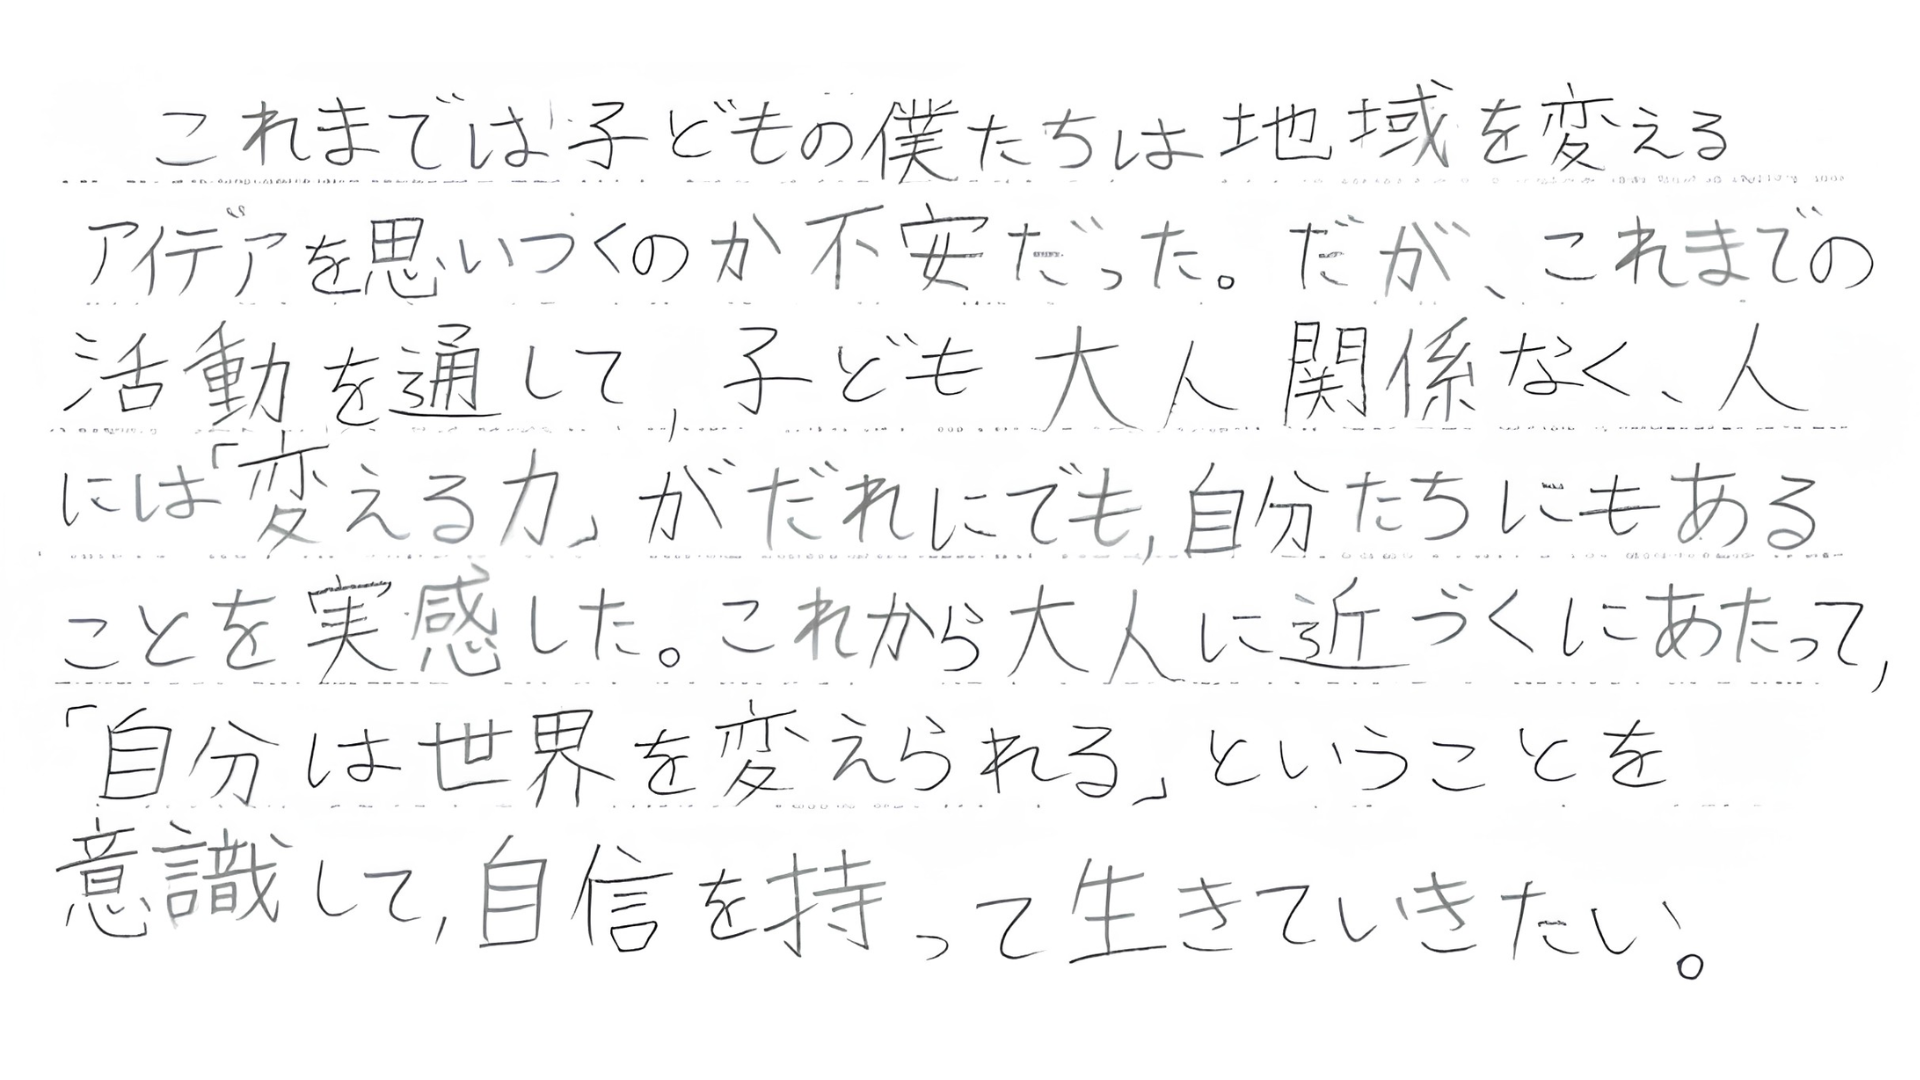 これまでは子どもの僕たちは地域を変える
アイデアを思いつくのか不安だった。だが、これまでの
活動を通して,子ども大人関係なく、人
には「変える力」がだれにでも,自分たちにもある
ことを実感した。これから大人に近づくにあたって,
「自分は世界を変えられる」ということを
意識して,自信を持って生きていきたい。